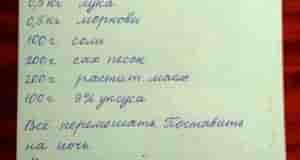 0,5 кг лука
0,5 кг моркови
100 г соли
200 г сах песок
200 г растит. масл
100 г 9% уксуса
Всё перемешать. Поставить
на ночь